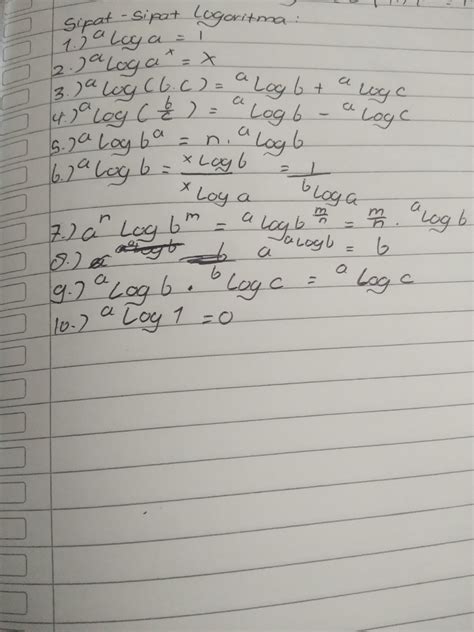 Sipat - Sipat Logaritma :
1.) ᵃLog a = 1
2.) ᵃLog aˣ = x
3.) ᵃLog (b.c) = ᵃLog b + ᵃLog c
4.) ᵃLog (b/c) = ᵃLog b - ᵃLog c
5.) ᵃLog bᵃ = n . ᵃLog b
6.) ᵃLog b = ˣLog b / ˣLog a = 1 / ᵇLog a
7.) aⁿ Log bᵐ = ᵃLog b^(m/n) = m/n . ᵃLog b
8.) a^(ᵃLog b) = b
9.) ᵃLog b . ᵇLog c = ᵃLog c
10.) ᵃLog 1 = 0